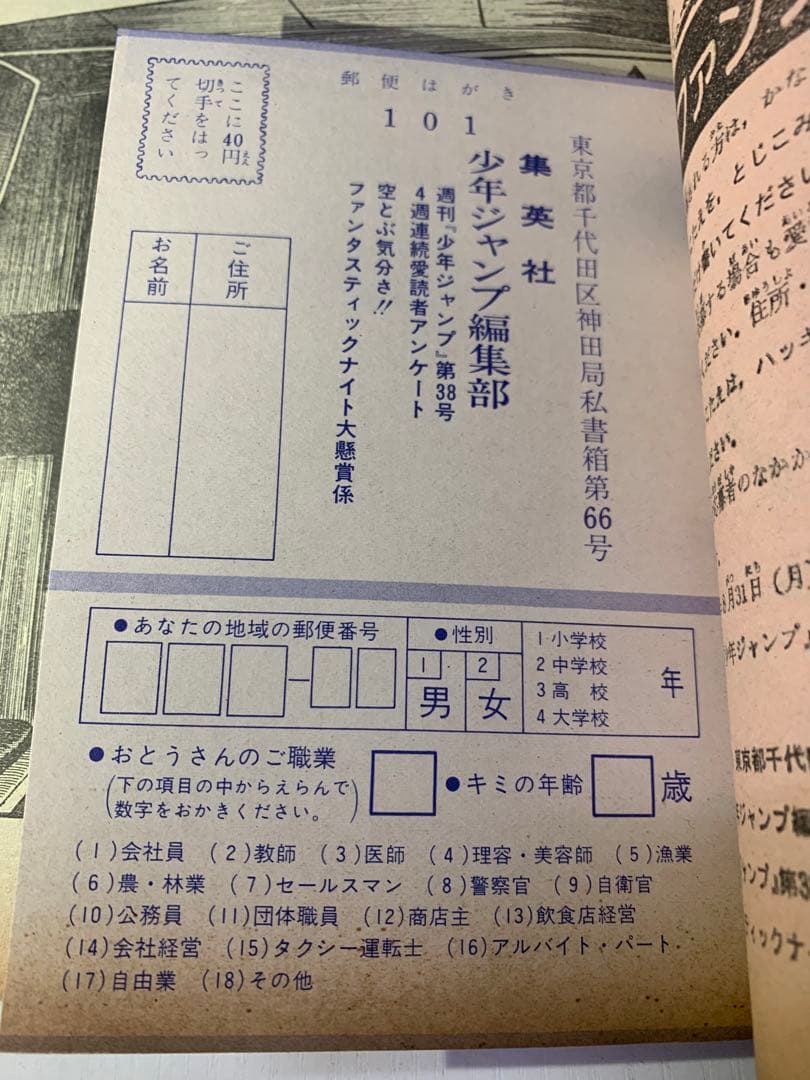 郵便はがき
101
ここに40円
切手をはっ
てください
東京都千代田区神田局私書箱第66号
集英社
少年ジャンプ編集部
週刊『少年ジャンプ』第38号
4週連続愛読者アンケート
空とぶ気分さ!!
ファンタスティックナイト大懸賞係
ご住所
お名前
●あなたの地域の郵便番号
●性別
1 男
2 女
1 小学校
2 中学校
3 高 校
4 大学校
年
●おとうさんのご職業
(下の項目の中からえらんで
数字をおかきください。)
●キミの年齢
歳
(1)会社員 (2)教師 (3)医師 (4)理容・美容師 (5)漁業
(6)農・林業 (7)セールスマン (8)警察官 (9)自衛官
(10)公務員 (11)団体職員 (12)商店主 (13)飲食店経営
(14)会社経営 (15)タクシー運転士 (16)アルバイト・パート
(17)自由業 (18)その他
ファン
れる方は、かな
を、とじこみ
いてください
する場合も愛
ださい。住所・
たえは、ハッキ
さい。
者のなかか
8月31日(月)
年ジャンプ』
東京都千代田
ジャンプ編
ャンプ』第3
ティックナ